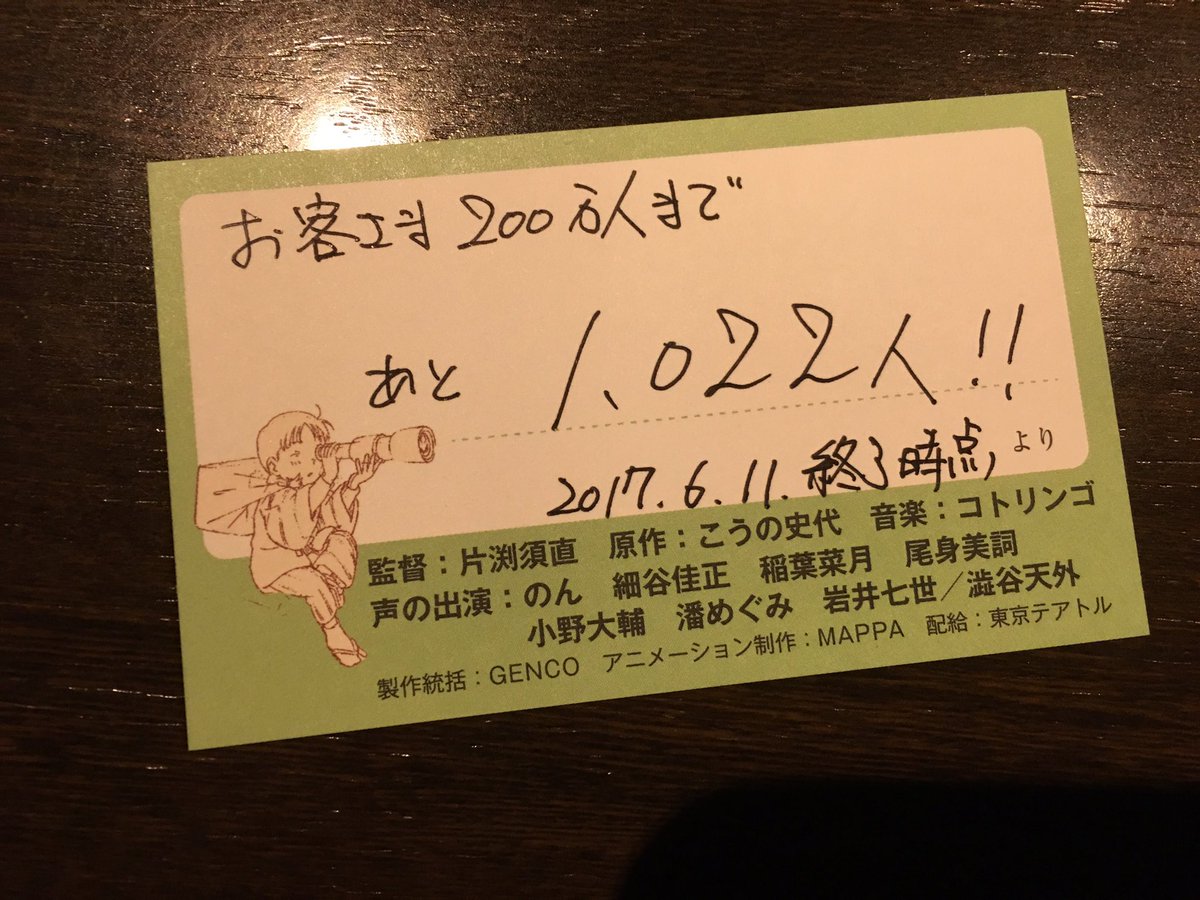 お客さま 200万人まで
あと 1,022人!!
2017.6.11. 終了時点 より
監督：片渕須直　原作：こうの史代　音楽：コトリンゴ
声の出演：のん　細谷佳正　稲葉菜月　尾身美詞
小野大輔　潘めぐみ　岩井七世／澁谷天外
製作統括：GENCO　アニメーション制作：MAPPA　配給：東京テアトル